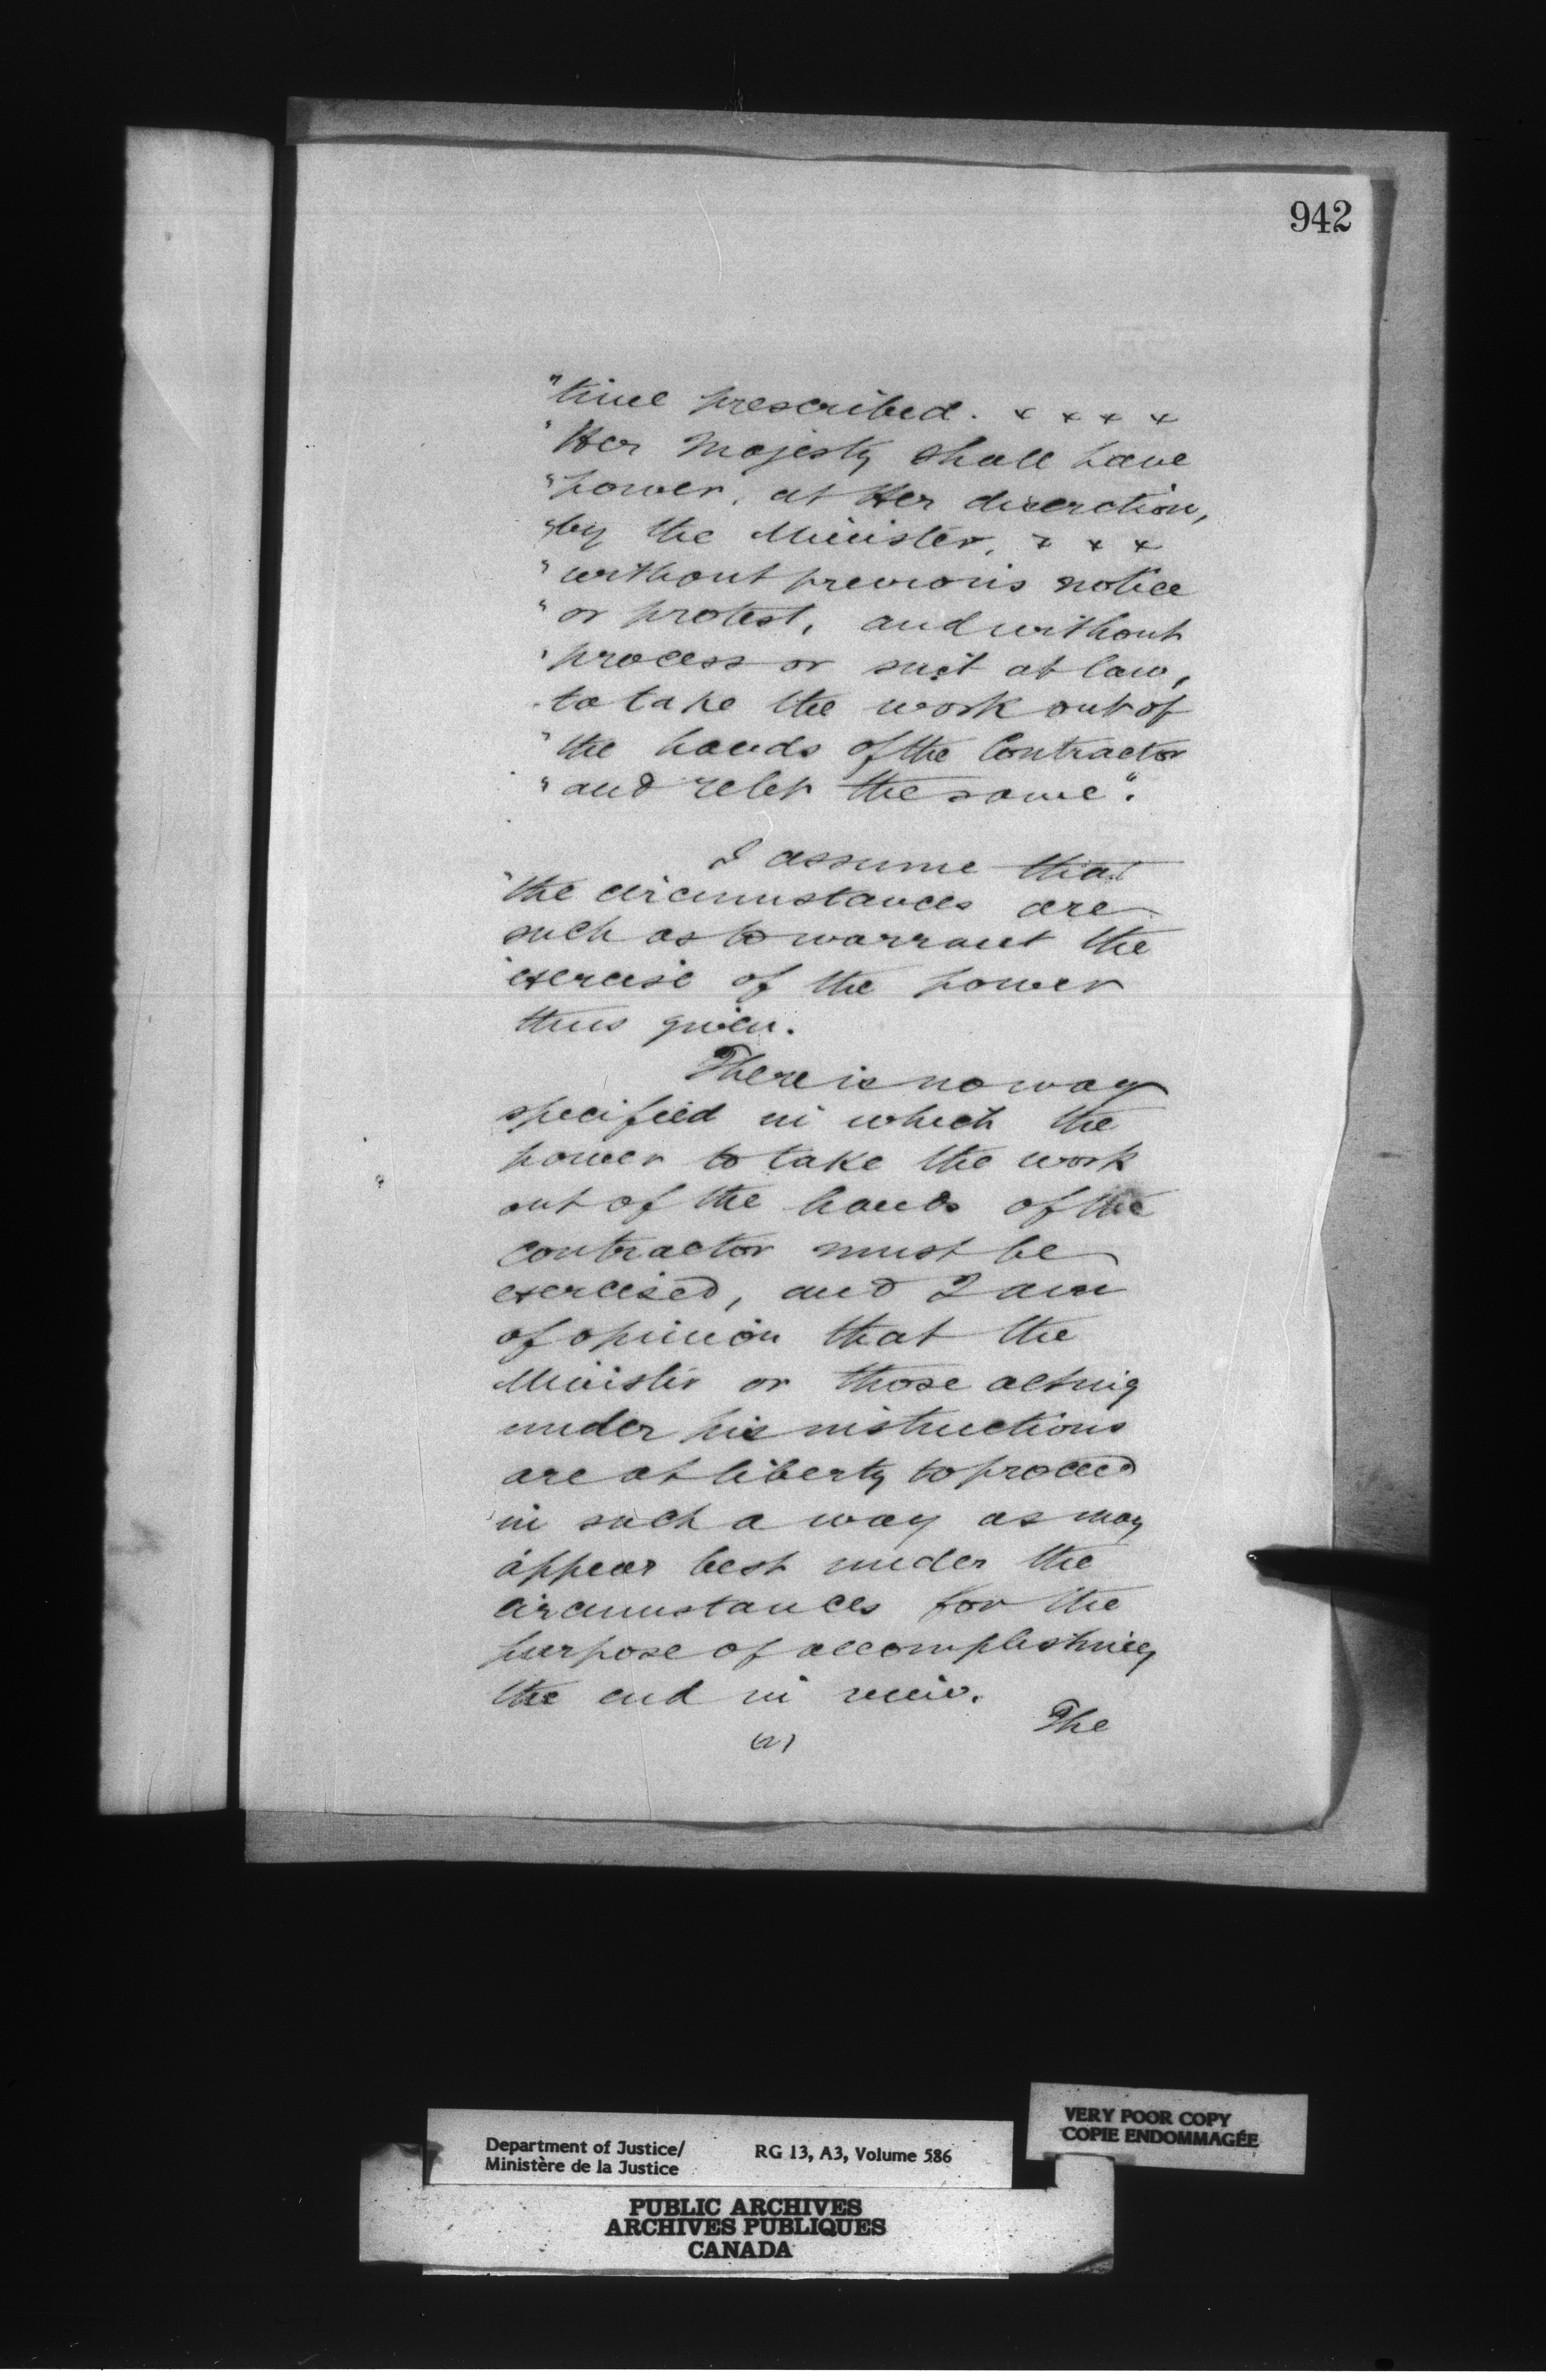 942
"time prescribed. x x x x
"Her Majesty shall have
"power, at Her discretion,
"by the Minister, x x x
"without previous notice
"or protest, and without
"process or suit at law,
"to take the work out of
"the hands of the Contractor
"and relet the same".
I assume that
the circumstances are
such as to warrant the
exercise of the power
thus given.
There is no way
specified in which the
power to take the work
out of the hands of the
contractor must be
exercised, and I am
of opinion that the
Minister or those acting
under his instructions
are at liberty to proceed
in such a way as may
appear best under the
circumstances for the
purpose of accomplishing
the end in view.
The
(2)
VERY POOR COPY
COPIE ENDOMMAGÉE
Department of Justice/ RG 13, A3, Volume 586
Ministère de la Justice
PUBLIC ARCHIVES
ARCHIVES PUBLIQUES
CANADA